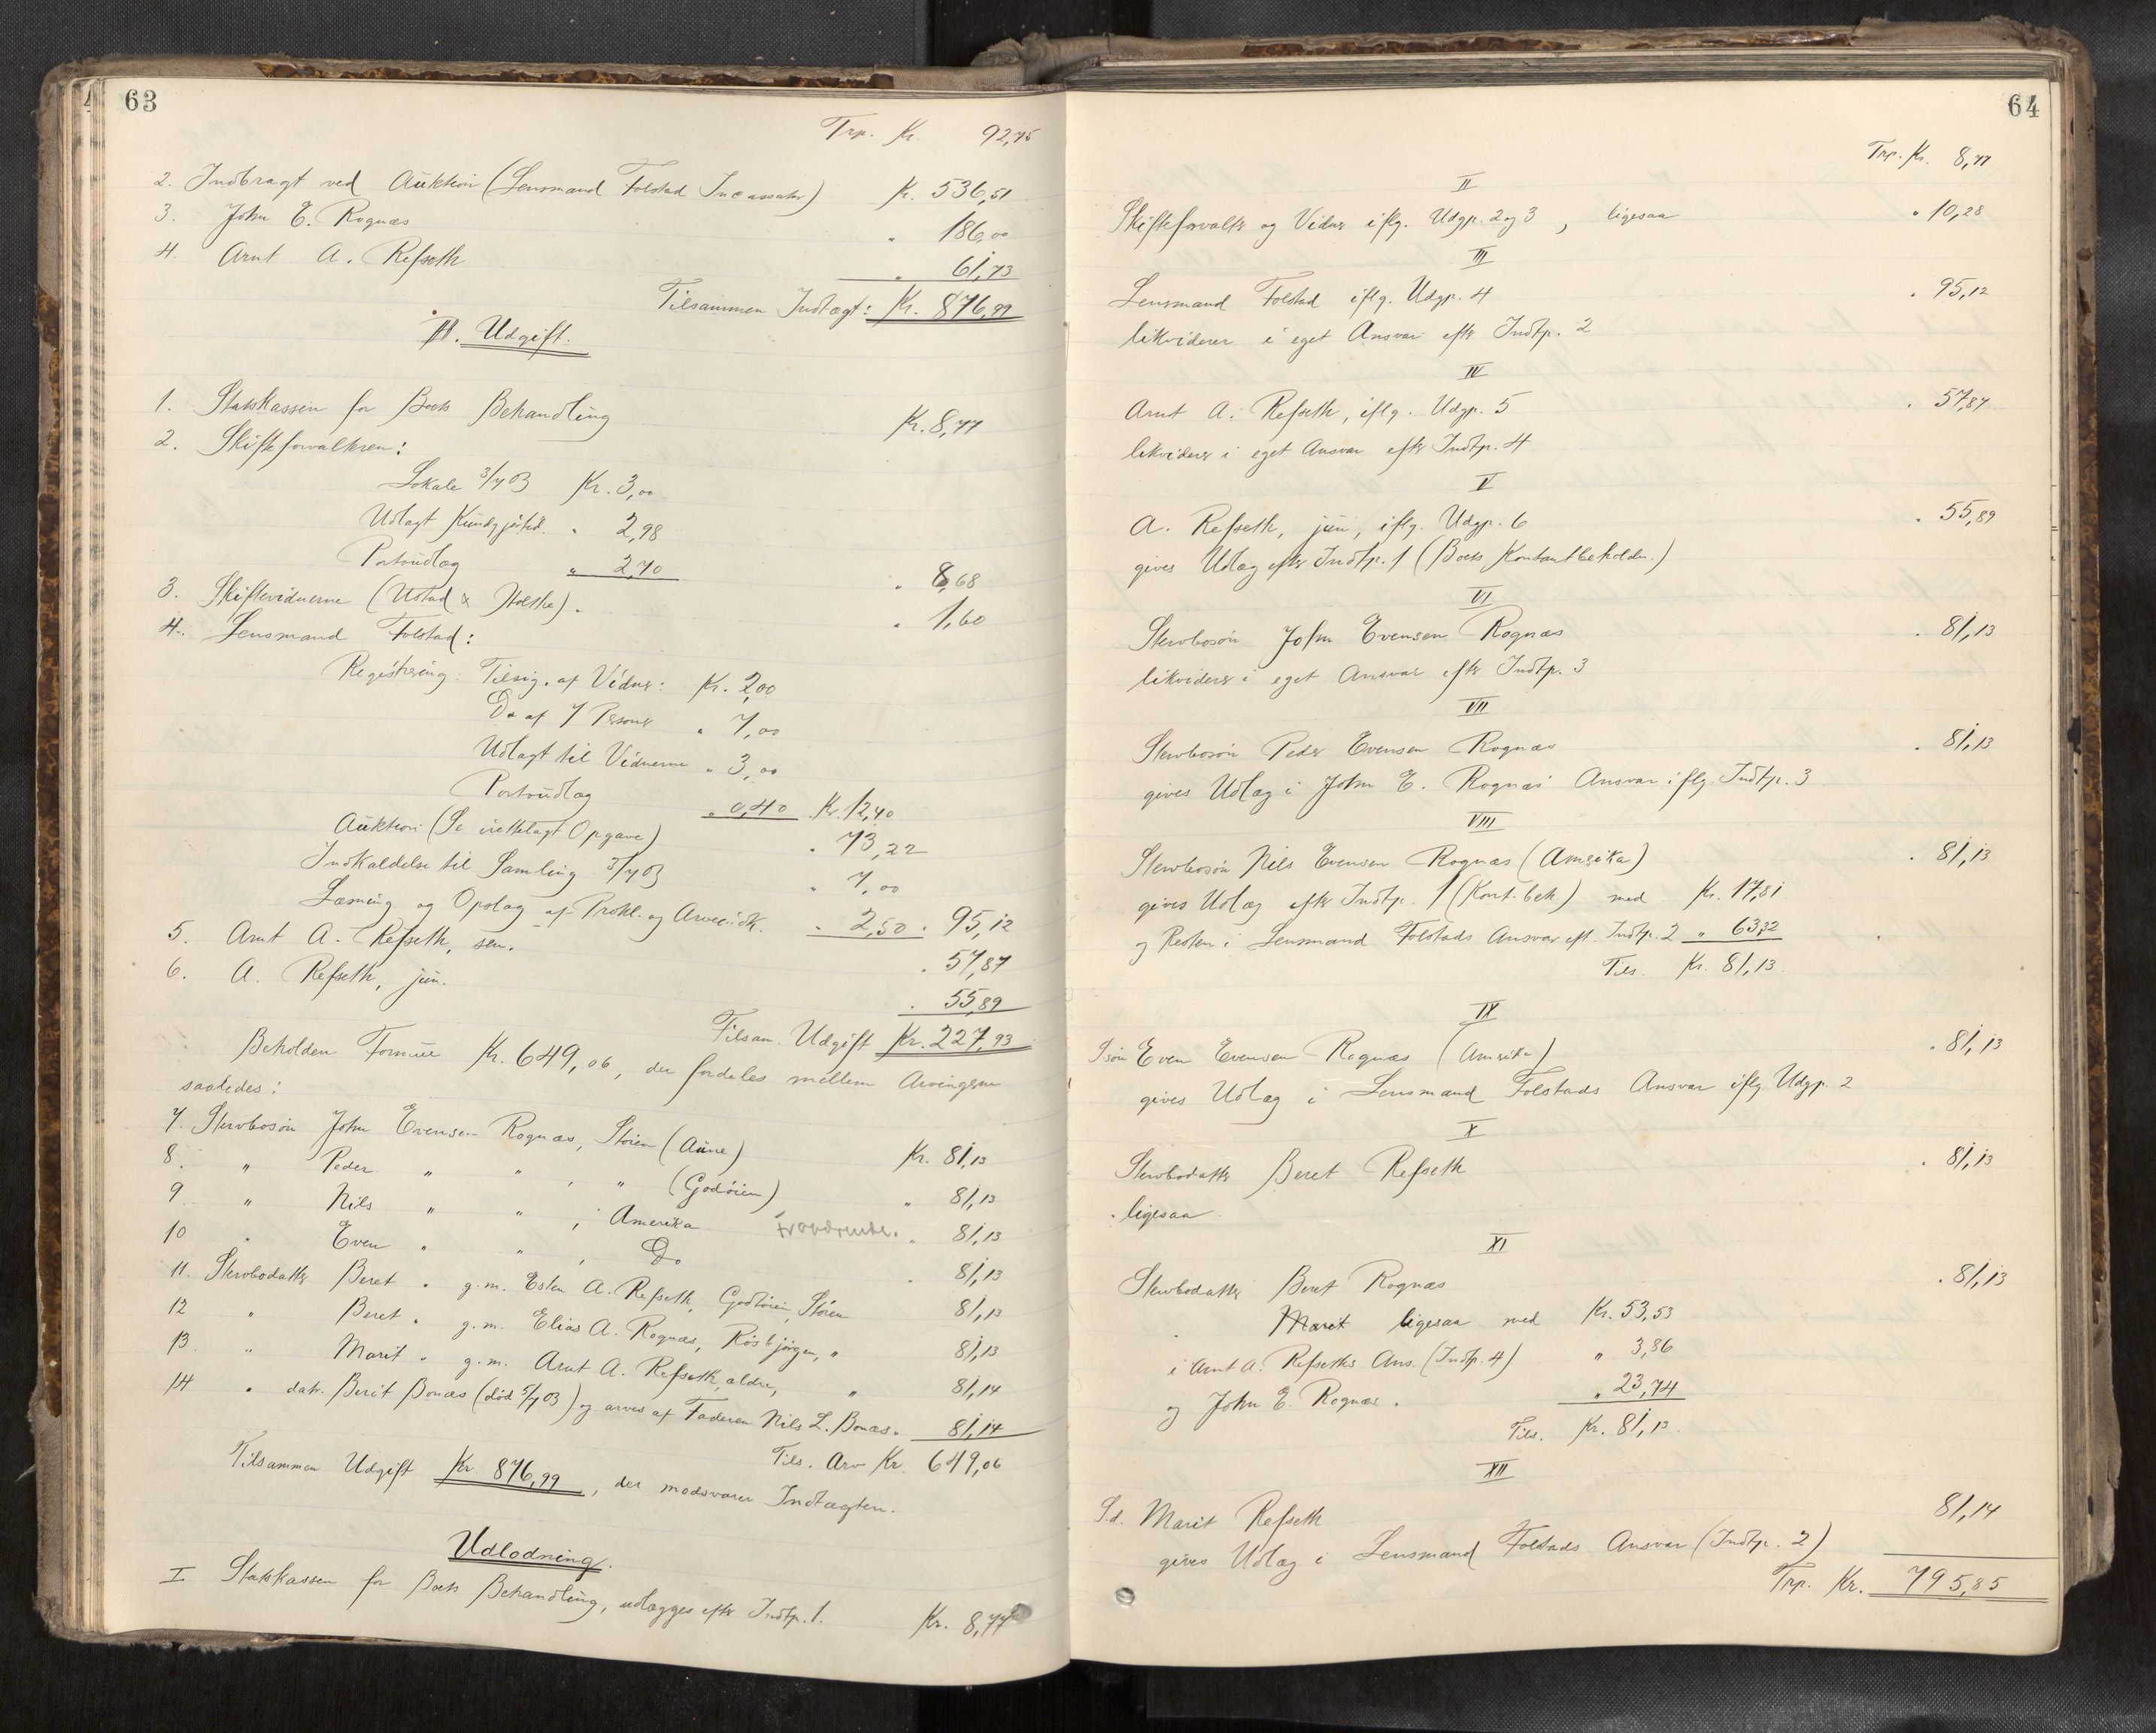 63
Trp. Kr. 92,75
2. Indbragt ved Auktion (Lensmand Folstad Incassator) Kr. 536,51
3. John E. Rognæs " 186,00
4. Arnt A. Refseth " 61,73
Tilsammen Indtægt: Kr. 876,99
B. Udgift.
1. Statskassen for Boets Behandling Kr. 8,77
2. Skifteforvalteren:
Lokale 3/7 03 Kr. 3,00
Udlagt Kundgjørelsd. " 2,98
Portoudlæg " 2,70 " 8,68
3. Skiftevidnerne (Ustad & ) " 1,60
4. Lensmand Folstad:
Registrering: Tilsig. af Vidner: Kr. 2,00
Do af 7 Personer " 7,00
Udlagt til Vidnerne " 3,00
Portoudlæg " 0,40 Kr. 12,40
Auktion (Se irettelagt Opgave) " 73,22
Indkaldelse til Samling 3/7 03 " 7,00
Læsning og Opslag af Prokl. og Arveindk. " 2,50 " 95,12
5. Arnt A. Refseth, sen. " 57,87
6. A. Refseth, jun. " 55,89
Tilsam. Udgift Kr. 227,93
Beholden Formue Kr. 649,06, der fordeles mellem Arvingerne
saaledes:
7. Stervbosøn John Evensen Rognæs, Støren (Aune) Kr. 81,13
8. " Peder " " , " (Godøien) " 81,13
9 " Nils " " , Amerika fraværende. " 81,13
10 " Even " " , Do " 81,13
11. Stervbodatter Beret " g.m. Esten A. Refseth, Godøien, Støren 81,13
12 " Beret " g.m. Elias A. Rognæs, Røsbjørgen, " 81,13
13. " Marit " g.m. Arnt A. Refseth, ældre, " 81,14
14 " datr. Berit Bonæs (død 5/7 03) og arves af Faderen Nils L. Bonæs " 81,14
Tils. Arv Kr. 649,06
Tilsammen Udgift Kr 876,99, der modsvarer Indtægten.
Udlodning.
I Statskassen for Boets Behandling, udlægges efter Indtp. 1. Kr. 8,77
64
Trp. Kr. 8,77
II
Skifteforvalter og Vidner iflg. Udgp. 2 og 3, ligesaa " 10,28
III
Lensmand Folstad iflg. Udgp. 4 " 95,12
likviderer i eget Ansvar efter Indtp. 2
IV
Arnt A. Refseth, iflg. Udgp. 5 " 57,87
likviderer i eget Ansvar efter Indtp. 4
V
A. Refseth, jun, iflg. Udgp. 6 " 55,89
gives Udlæg efter Indtp. 1 (Boets Kontantbeholdn.)
VI
Stervbosøn John Evensen Rognæs " 81,13
likviderer i eget Ansvar efter Indtp. 3
VII
Stervbosøn Peder Evensen Rognæs " 81,13
gives Udlæg i John E. Rognæs' Ansvar iflg. Indtp. 3
VIII
Stervbosøn Nils Evensen Rognæs (Amerika) " 81,13
gives Udlæg efter Indtp. 1 (Kont.beh) med Kr. 17,81
og Resten i Lensmand Folstads Ansvar eft. Indtp. 2 " 63,32
Tils. Kr. 81,13
IX
Søn Even Evensen Rognæs (Amerika) " 81,13
gives Udlæg i Lensmand Folstads Ansvar iflg. Udgp. 2
X
Stervbodatter Beret Refseth " 81,13
" ligesaa
XI
Stervbodatter Beret Rognæs " 81,13
" Marit ligesaa med Kr. 53,53
i Arnt A. Refseths Ans. (Indtp. 4) " 3,86
og John E. Rognæs " " 23,74
Tils. Kr. 81,13
XII
S.d. Marit Refseth 81,14
gives Udlæg i Lensmand Folstads Ansvar (Indtp. 2)
Trp. Kr. 795,85